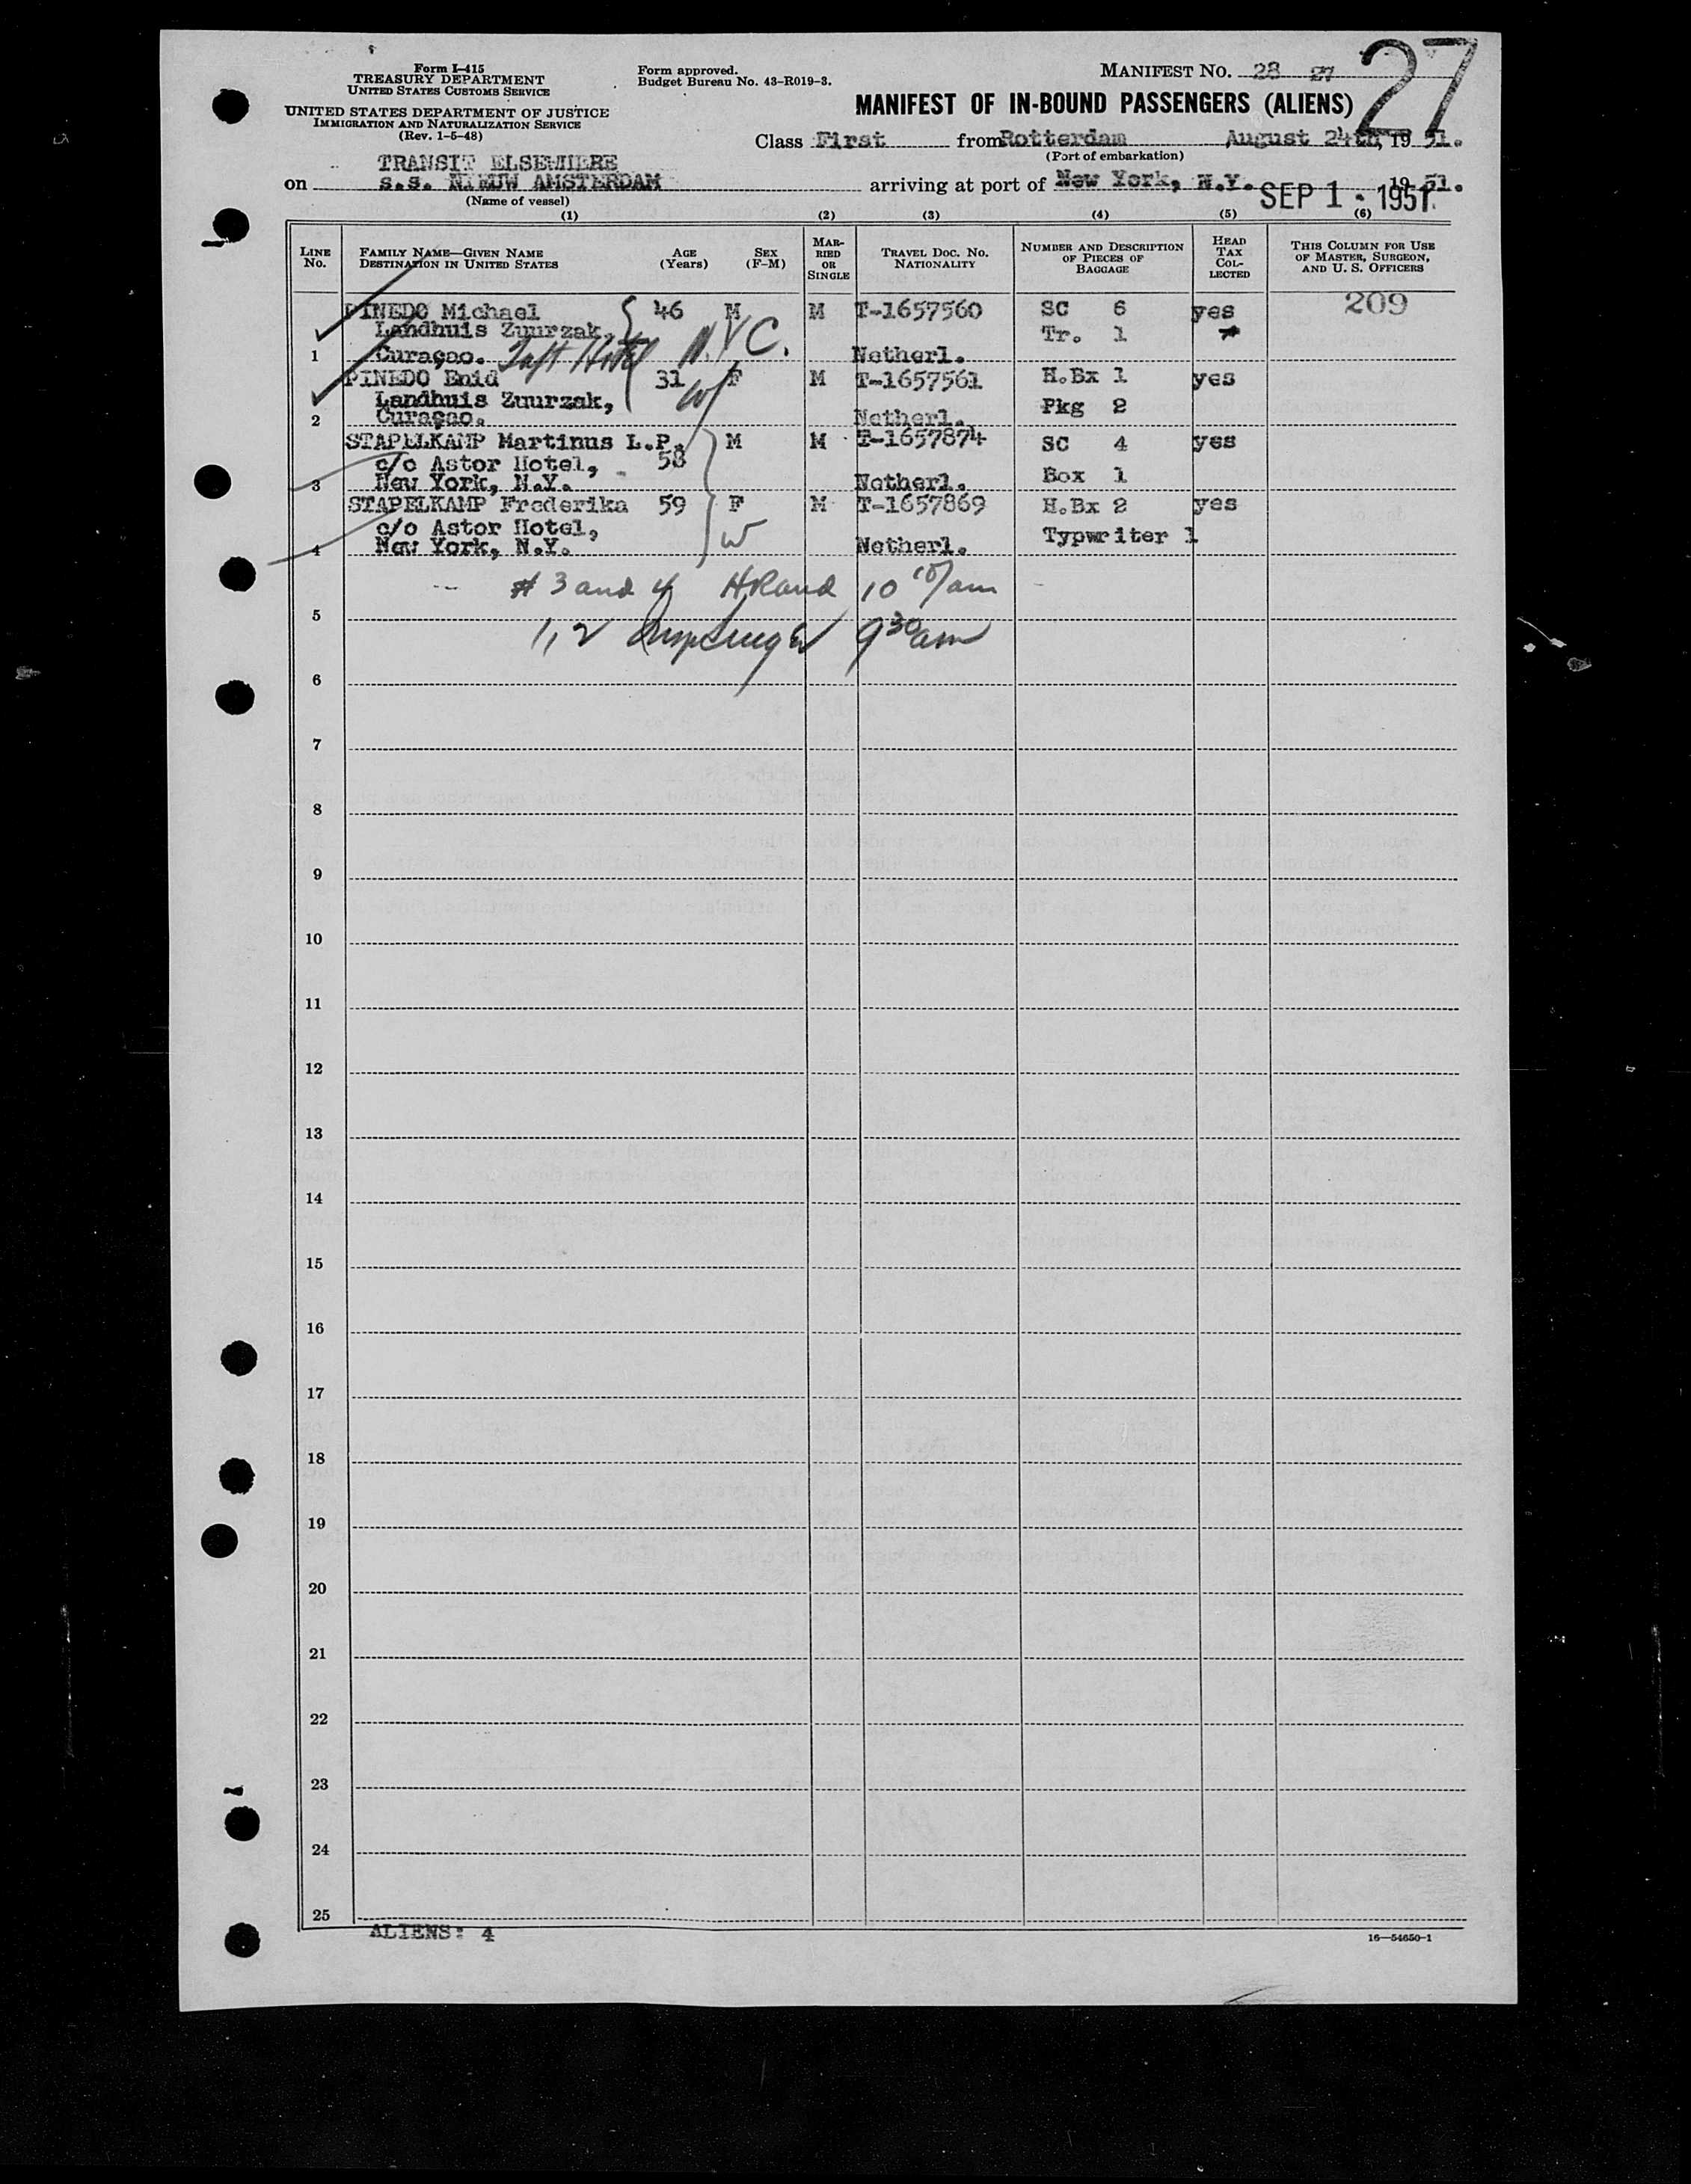 Form I-415
TREASURY DEPARTMENT
UNITED STATES CUSTOMS SERVICE
UNITED STATES DEPARTMENT OF JUSTICE
IMMIGRATION AND NATURALIZATION SERVICE
(Rev. 1-5-48)
Form approved.
Budget Bureau No. 43-R019-3.
MANIFEST NO. 28 27
27
MANIFEST OF IN-BOUND PASSENGERS (ALIENS)
Class First from Rotterdam August 24th, 19 51.
(Port of embarkation)
TRANSIT ELSEWHERE
on s.s. NIEUW AMSTERDAM arriving at port of New York, N.Y. 19 51.
SEP 1 - 1951
(Name of vessel)
(1) (2) (3) (4) (5) (6)
LINE No. FAMILY NAME—GIVEN NAME DESTINATION IN UNITED STATES AGE (Years) SEX (F-M) MARRIED OR SINGLE TRAVEL DOC. NO. NATIONALITY NUMBER AND DESCRIPTION OF PIECES OF BAGGAGE HEAD TAX COLLECTED THIS COLUMN FOR USE OF MASTER, SURGEON, AND U. S. OFFICERS
PINEDO Michael 46 M M T-1657560 SC 6 yes 209
Landhuis Zuurzak, Tr. 1
1 Curaçao. Taft Hotel N.Y.C. Netherl.
PINEDO Enid 31 F M T-1657561 H.Bx 1 yes
Landhuis Zuurzak, W Pkg 2
2 Curaçao. Netherl.
STAPELKAMP Martinus L.P. M M T-1657874 SC 4 yes
c/o Astor Hotel, 58
3 New York, N.Y. Netherl. Box 1
STAPELKAMP Frederika 59 F M T-1657869 H.Bx 2 yes
c/o Astor Hotel, W Typwriter 1
4 New York, N.Y. Netherl.
# 3 and 4 10 am
5
1, 2 9 30 am
6
7
8
9
10
11
12
13
14
15
16
17
18
19
20
21
22
23
24
25
ALIENS: 4
16—54650-1